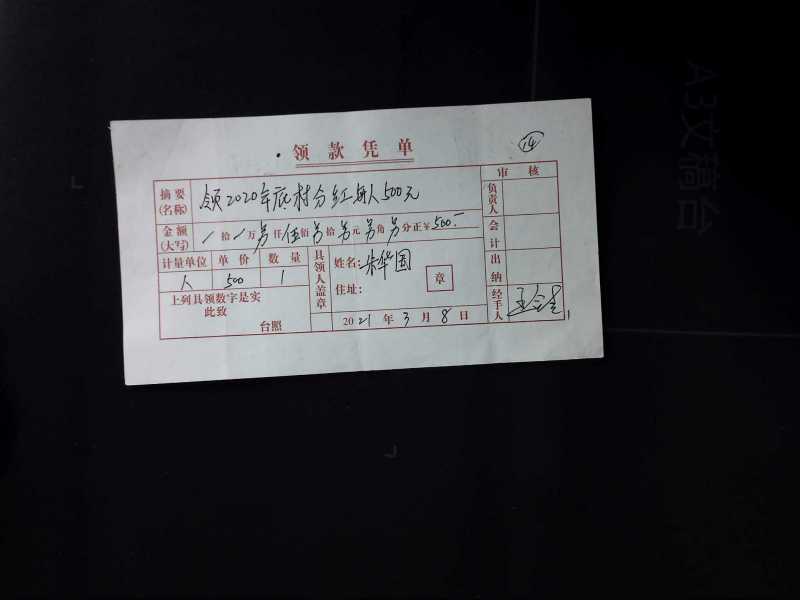 领款凭单
14
摘要(名称) 领2020年底村分红每人500元
审核
负责人
金额(大写) / 拾 / 万 另 仟 伍 佰 另 拾 另 元 另 角 另 分正¥500.-
会计
计量单位 单价 数量
人 500 1
具领人盖章 姓名: 朱华国
住址:
章
出纳
上列具领数字是实
此致
台照
2021年3月8日
经手人
A3文稿台